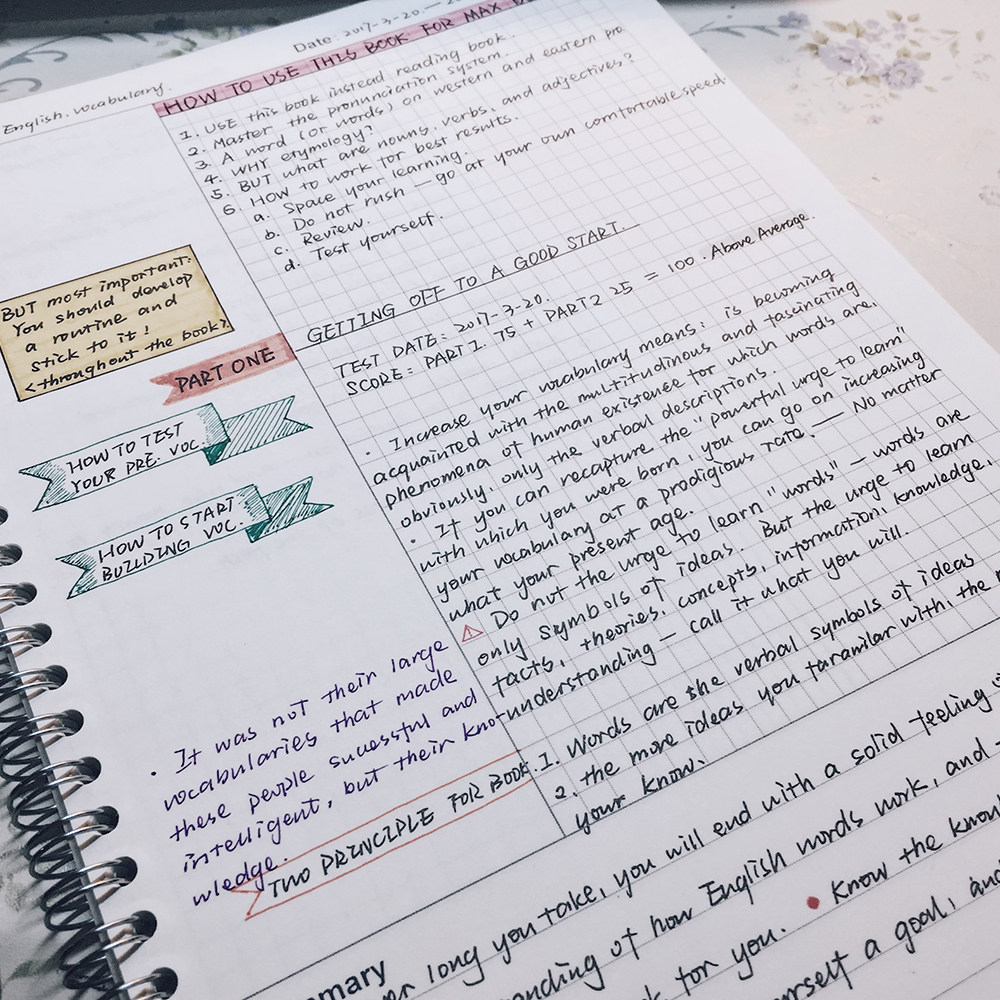 Date: 2017-3-20.—2
English. vocabulary.
HOW TO USE THIS BOOK FOR MAX
1. USE this book instead reading book.
2. Master the pronunciation system.
3. A word (or words) on western and eastern pro.
4. WHY etymology?
5. BUT what are nouns, verbs, and adjectives?
6. HOW to work for best results.
a. Space your learning.
b. Do not rush — go at your own comfortable speed.
c. Review.
d. Test yourself.
BUT most important:
You should develop
a routine and
stick to it!
<throughout the book>.
PART ONE
HOW TO TEST
YOUR PRE. VOC.
HOW TO START
BUILDING VOC.
GETTING OFF TO A GOOD START.
TEST DATE: 2017-3-20.
SCORE: PART 1. 75 + PART 2 25 = 100. Above Average.
· Increase your vocabulary means: is becoming
acquainted with the multitudinous and fascinating
phenomena of human existence for which words are,
obviously, only the verbal descriptions.
· If you can recapture the "powerful urge to learn"
with which you were born, you can go on increasing
your vocabulary at a prodigious rate. — No matter
what your present age.
⚠ Do not the urge to learn "words" — words are
only symbols of ideas. But the urge to learn
facts, theories, concepts, information, knowledge,
understanding — call it what you will.
· It was not their large
vocabularies that made
these people sucessful and
intelligent, but their kno-
wledge.
TWO PRINCIPLE FOR BOOK.
1. Words are the verbal symbols of ideas
2. the more ideas you faramilar with, the
your know.
mmary
er long you take, you will end with a solid feeling
anding of how English words work, and
k for you. • Know the know
urself a goal, and